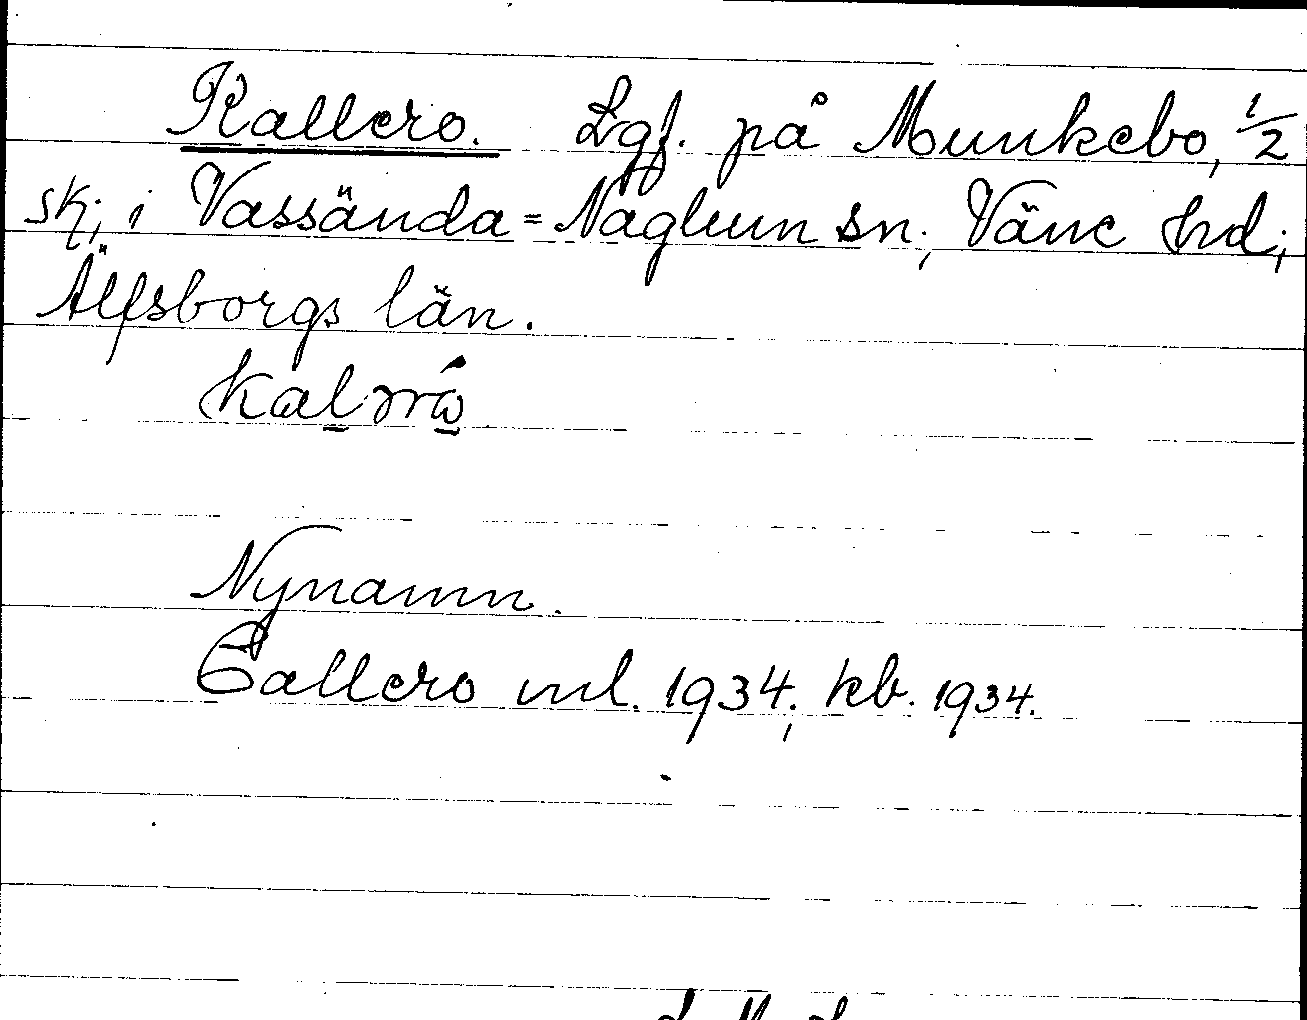 Kallero. Lgf. på Munkebo, 1/2
sk; i Vassända=Naglum sn; Väne hd;
Älfsborgs län.
Nynamn.
Callero ml. 1934; kb. 1934.